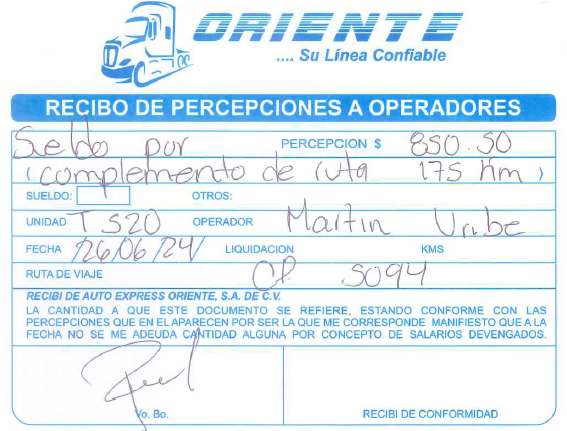 ORIENTE
.... Su Línea Confiable
RECIBO DE PERCEPCIONES A OPERADORES
Sueldo por PERCEPCION $ 850.50
(complemento de ruta 175 Km)
SUELDO: OTROS:
UNIDAD TS20 OPERADOR Martin Uribe
FECHA 26/06/24/ LIQUIDACION KMS
RUTA DE VIAJE CP 5094
RECIBI DE AUTO EXPRESS ORIENTE, S.A. DE C.V.
LA CANTIDAD A QUE ESTE DOCUMENTO SE REFIERE, ESTANDO CONFORME CON LAS
PERCEPCIONES QUE EN EL APARECEN POR SER LA QUE ME CORRESPONDE MANIFIESTO QUE A LA
FECHA NO SE ME ADEUDA CANTIDAD ALGUNA POR CONCEPTO DE SALARIOS DEVENGADOS.
Vo. Bo. RECIBI DE CONFORMIDAD